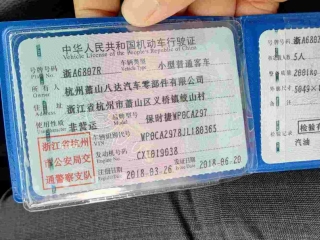 中华人民共和国机动车行驶证
Vehicle License of the People's Republic of China
号牌号码 浙A6807R 车辆类型 小型普通客车
Plate No. Vehicle Type
所有人 杭州萧山八达汽车零部件有限公司
Owner
住址 浙江省杭州市萧山区义桥镇岐山村
Address
使用性质 非营运 品牌型号 保时捷WP0CA297
Use Character Model
浙江省杭州
市公安局交
通警察支队
车辆识别代号 WP0CA2978JL180365
VIN
发动机号码 CX1019038
Engine No.
注册日期 2018-03-26 发证日期 2018-06-20
Register Date Issue Date
号牌号码
5人
2001kg
5049×1
检验有
汽油